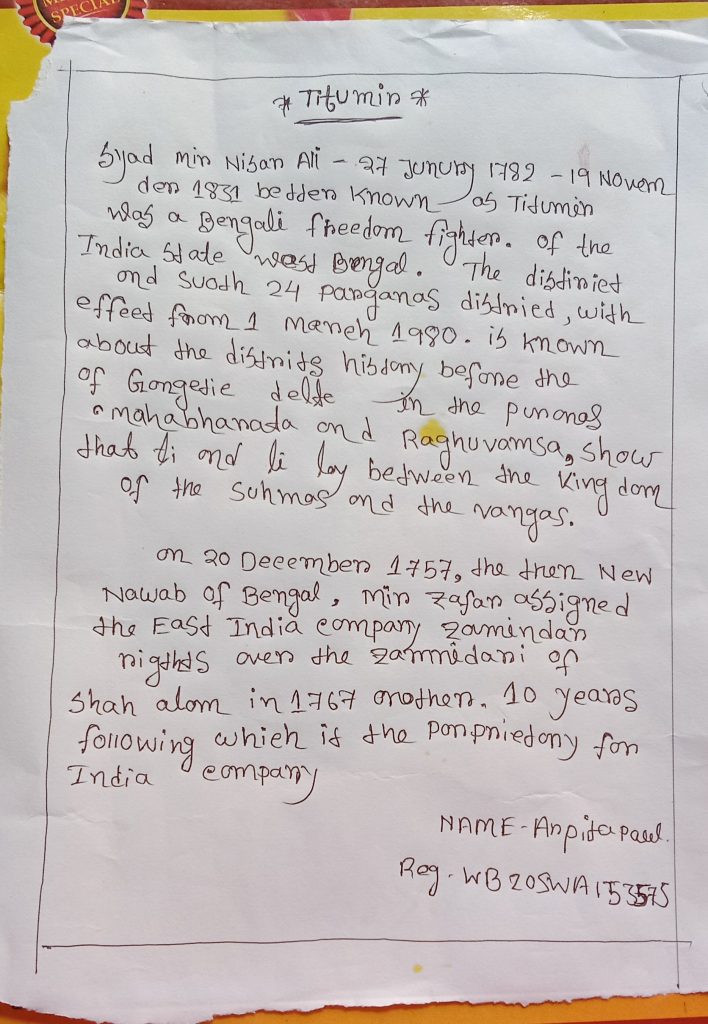 SPECIAL
* Titumir *
Syad mir Nisar Ali - 27 Junury 1782 - 19 Novem
ber 1831 better known as Titumir
was a Bengali freedom fighter. of the
India state west Bengal. The distiriet
and Suoth 24 parganas distried, with
effeet from 1 mareh 1980. is known
about the distrits history before the
of Gongetie delte in the puranas
mahabharata and Raghuvamsa, show
that ti and li lay between the King dom
of the Suhmas and the vangas.
on 20 Deeember 1757, the then New
Nawab of Bengal, mir zafar assigned
the East India eompany zamindar
rigthts over the zammidari of
Shah alom in 1767 another. 10 years
following which it the porprietory for
India eompany
NAME - Arpita paul.
Reg. WB20SWA153575